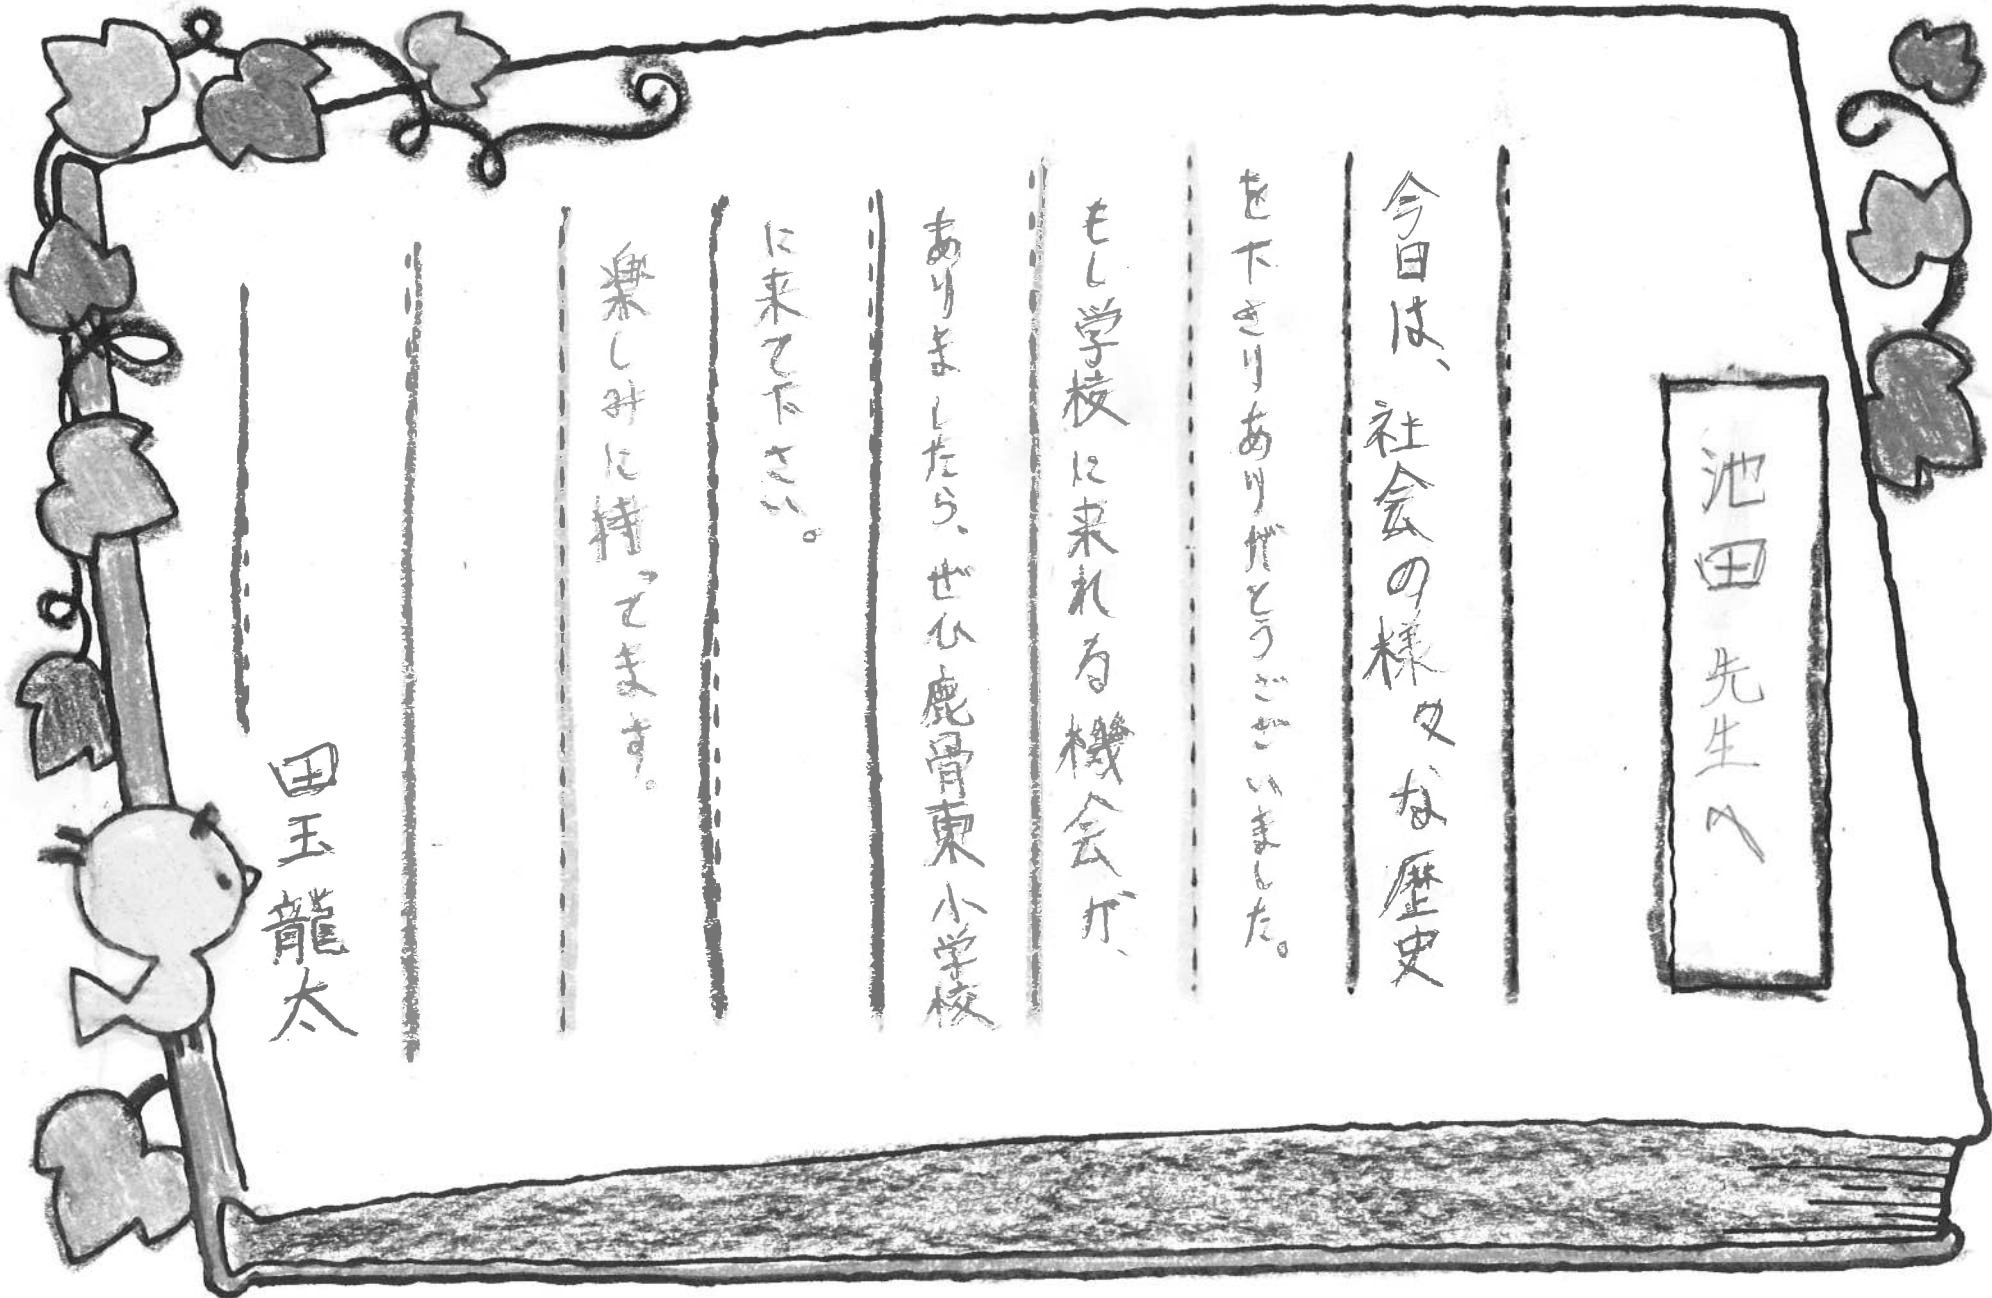 池田先生へ
今日は、社会の様々な歴史
を下さりありがとうございました。
もし学校に来れる機会が、
ありましたら、ぜひ鹿骨東小学校
に来て下さい。
楽しみに待ってます。
田玉龍太